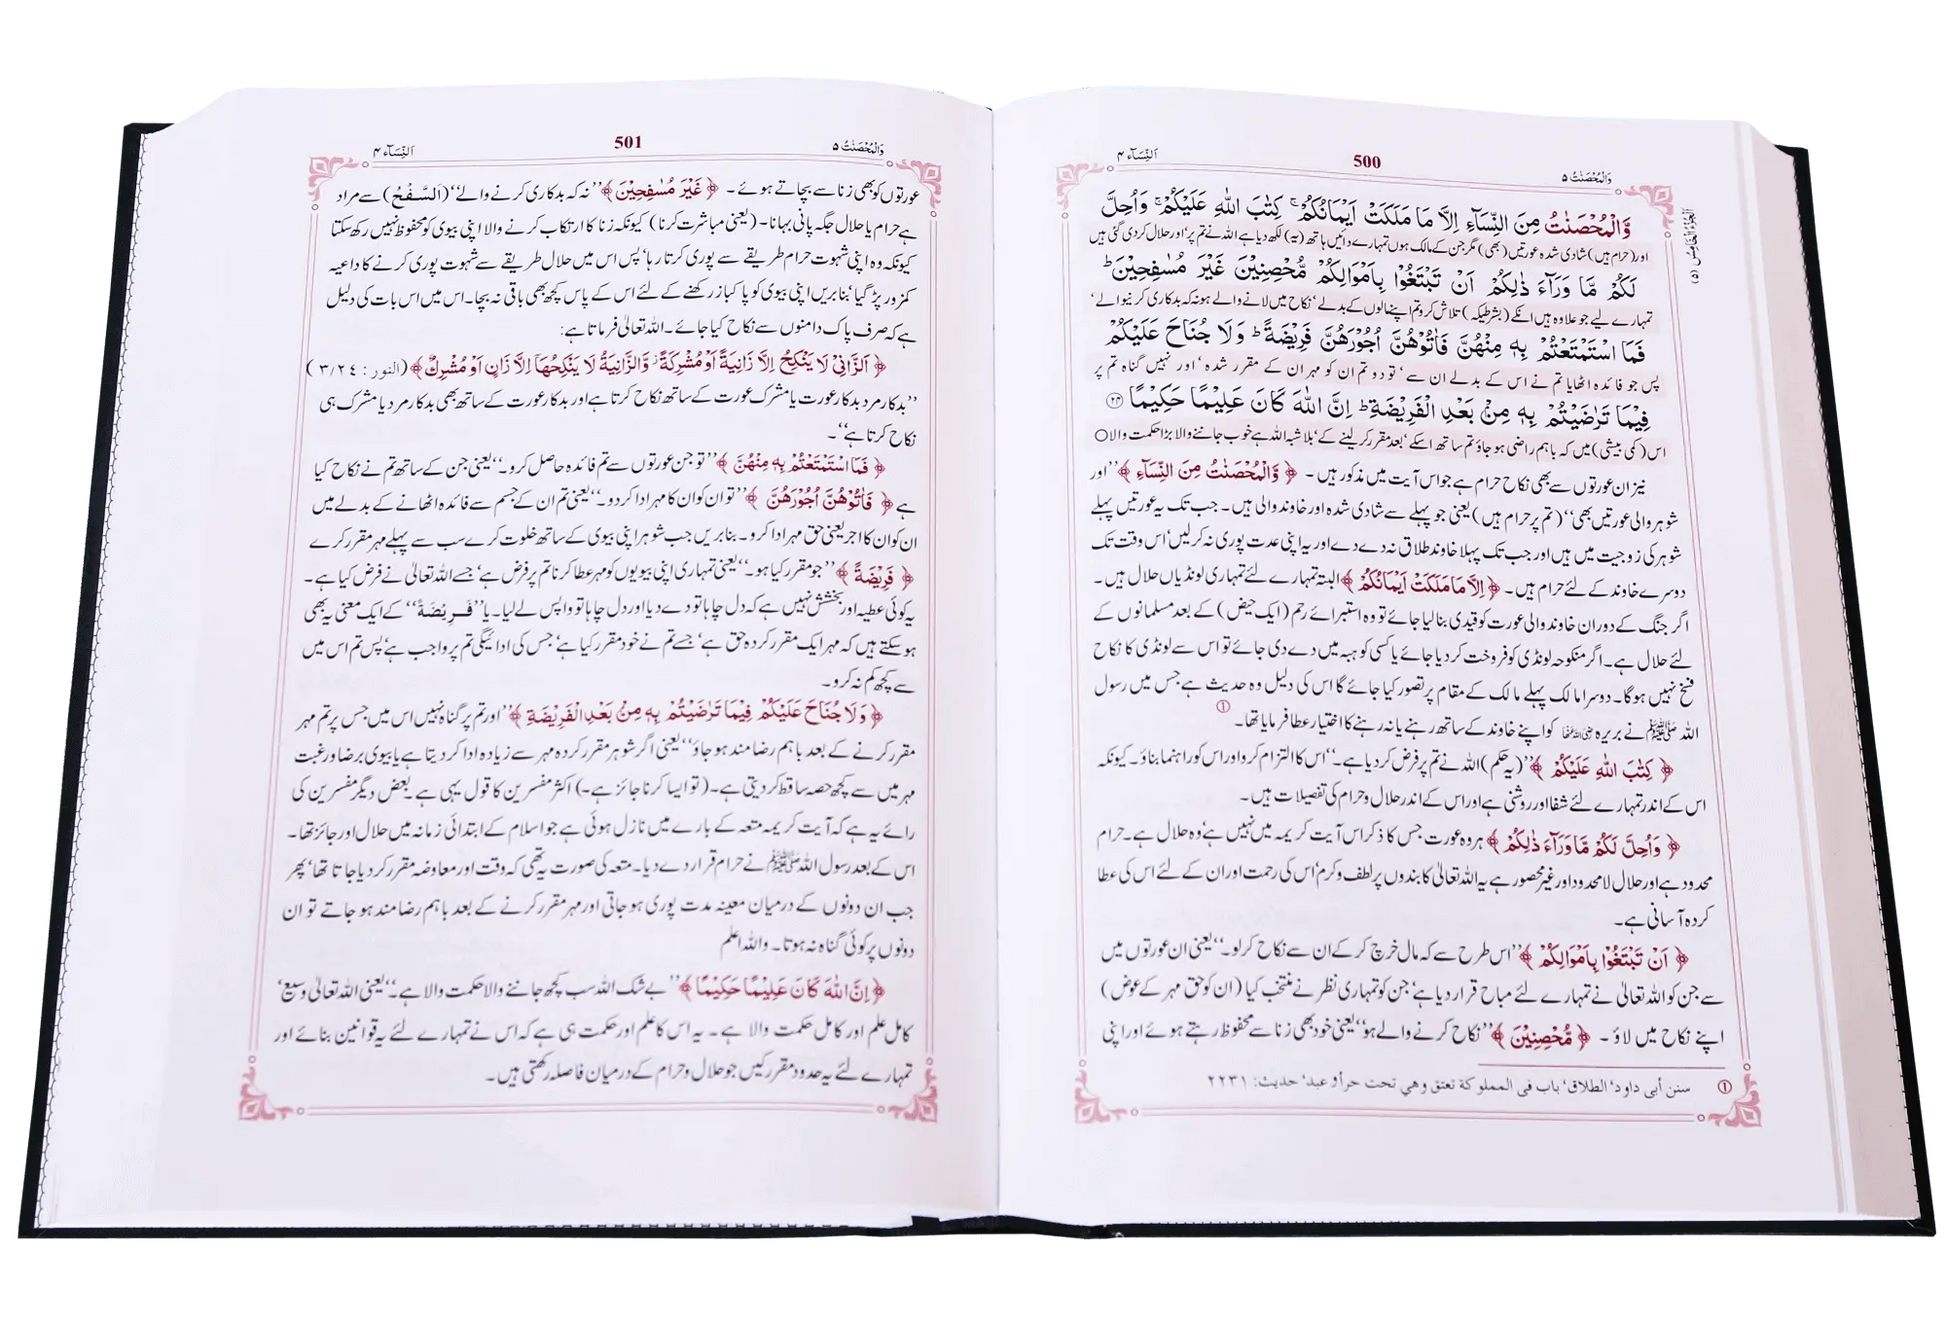 اَلنِّسَآء ۴
500
وَالْمُحْصَنٰتُ ۵
اَلْجُزْءُ الْخَامِسُ (۵)
وَّالْمُحْصَنٰتُ مِنَ النِّسَآءِ اِلَّا مَا مَلَكَتْ اَيْمَانُكُمْ ۚ كِتٰبَ اللّٰهِ عَلَيْكُمْ ۚ وَاُحِلَّ
اور (حرام ہیں) شادی شدہ عورتیں (بھی) مگر جن کے مالک ہوں تمہارے دائیں ہاتھ (یہ) لکھ دیا ہے اللہ نے تم پر' اور حلال کر دی گئی ہیں
لَكُمْ مَّا وَرَآءَ ذٰلِكُمْ اَنْ تَبْتَغُوْا بِاَمْوَالِكُمْ مُّحْصِنِيْنَ غَيْرَ مُسٰفِحِيْنَ ؕ
تمہارے لیے جو علاوہ ہیں انکے (بشرطیکہ) تلاش کرو تم اپنے مالوں کے بدلے' نکاح میں لانے والے ہو نہ کہ بدکاری کرنیوالے'
فَمَا اسْتَمْتَعْتُمْ بِهٖ مِنْهُنَّ فَاٰتُوْهُنَّ اُجُوْرَهُنَّ فَرِيْضَةً ؕ وَلَا جُنَاحَ عَلَيْكُمْ
پس جو فائدہ اٹھایا تم نے اس کے بدلے ان سے' تو دو تم ان کو مہر ان کے مقرر شدہ' اور نہیں گناہ تم پر
فِيْمَا تَرٰضَيْتُمْ بِهٖ مِنْۢ بَعْدِ الْفَرِيْضَةِ ؕ اِنَّ اللّٰهَ كَانَ عَلِيْمًا حَكِيْمًا ﴿۲۴﴾
اس (کمی بیشی) میں کہ باہم راضی ہو جاؤ تم ساتھ اسکے' بعد مقرر کر لینے کے' بلاشبہ اللہ ہے خوب جاننے والا بڑا حکمت والا ○
نیز ان عورتوں سے بھی نکاح حرام ہے جو اس آیت میں مذکور ہیں۔ ﴿وَّالْمُحْصَنٰتُ مِنَ النِّسَآءِ﴾ ''اور
شوہر والی عورتیں بھی'' (تم پر حرام ہیں) یعنی جو پہلے سے شادی شدہ اور خاوند والی ہیں۔ جب تک یہ عورتیں پہلے
شوہر کی زوجیت میں ہیں اور جب تک پہلا خاوند طلاق نہ دے دے اور یہ اپنی عدت پوری نہ کر لیں' اس وقت تک
دوسرے خاوند کے لئے حرام ہیں۔ ﴿اِلَّا مَا مَلَكَتْ اَيْمَانُكُمْ﴾ البتہ تمہارے لئے تمہاری لونڈیاں حلال ہیں۔
اگر جنگ کے دوران خاوند والی عورت کو قیدی بنا لیا جائے تو وہ استبرائے رحم (ایک حیض) کے بعد مسلمانوں کے
لئے حلال ہے۔ اگر منکوحہ لونڈی کو فروخت کر دیا جائے یا کسی کو ہبہ میں دے دی جائے تو اس سے لونڈی کا نکاح
فسخ نہیں ہوگا۔ دوسرا مالک پہلے مالک کے مقام پر تصور کیا جائے گا اس کی دلیل وہ حدیث ہے جس میں رسول
اللہ ﷺ نے بریرہ کو اپنے خاوند کے ساتھ رہنے یا نہ رہنے کا اختیار عطا فرمایا تھا۔ ①
﴿كِتٰبَ اللّٰهِ عَلَيْكُمْ﴾ ''(یہ حکم) اللہ نے تم پر فرض کر دیا ہے۔'' اس کا التزام کرو اور اس کو راہنما بناؤ۔ کیونکہ
اس کے اندر تمہارے لئے شفا اور روشنی ہے اور اس کے اندر حلال و حرام کی تفصیلات ہیں۔
﴿وَاُحِلَّ لَكُمْ مَّا وَرَآءَ ذٰلِكُمْ﴾ ہر وہ عورت جس کا ذکر اس آیت کریمہ میں نہیں ہے' وہ حلال ہے۔ حرام
محدود ہے اور حلال لامحدود اور غیر محصور ہے یہ اللہ تعالیٰ کا بندوں پر لطف و کرم' اس کی رحمت اور ان کے لئے اس کی عطا
کردہ آسانی ہے۔
﴿اَنْ تَبْتَغُوْا بِاَمْوَالِكُمْ﴾ ''اس طرح سے کہ مال خرچ کر کے ان سے نکاح کر لو۔'' یعنی ان عورتوں میں
سے جن کو اللہ تعالیٰ نے تمہارے لئے مباح قرار دیا ہے' جن کو تمہاری نظر نے منتخب کیا (ان کو حق مہر کے عوض)
اپنے نکاح میں لاؤ۔ ﴿مُّحْصِنِيْنَ﴾ ''نکاح کرنے والے ہو'' یعنی خود بھی زنا سے محفوظ رہتے ہوئے اور اپنی
① سنن أبی داود' الطلاق' باب فی المملوكة تعتق وهي تحت حر أو عبد' حديث: ٢٢٣١
اَلنِّسَآء ۴
501
وَالْمُحْصَنٰتُ ۵
عورتوں کو بھی زنا سے بچاتے ہوئے۔ ﴿غَيْرَ مُسٰفِحِيْنَ﴾ ''نہ کہ بدکاری کرنے والے'' (اَلسَّفْحُ) سے مراد
ہے حرام یا حلال جگہ پانی بہانا۔ (یعنی مباشرت کرنا) کیونکہ زنا کا ارتکاب کرنے والا اپنی بیوی کو محفوظ نہیں رکھ سکتا
کیونکہ وہ اپنی شہوت حرام طریقے سے پوری کرتا رہا' پس اس میں حلال طریقے سے شہوت پوری کرنے کا داعیہ
کمزور پڑ گیا' بنا بریں اپنی بیوی کو پاکباز رکھنے کے لئے اس کے پاس کچھ بھی باقی نہ بچا۔ اس میں اس بات کی دلیل
ہے کہ صرف پاک دامنوں سے نکاح کیا جائے۔ اللہ تعالیٰ فرماتا ہے:
﴿اَلزَّانِيْ لَا يَنْكِحُ اِلَّا زَانِيَةً اَوْ مُشْرِكَةً ۫ وَّالزَّانِيَةُ لَا يَنْكِحُهَاۤ اِلَّا زَانٍ اَوْ مُشْرِكٌ﴾ (النور: ٣/٢٤)
''بدکار مرد بدکار عورت یا مشرک عورت کے ساتھ نکاح کرتا ہے اور بدکار عورت کے ساتھ بھی بدکار مرد یا مشرک ہی
نکاح کرتا ہے''۔
﴿فَمَا اسْتَمْتَعْتُمْ بِهٖ مِنْهُنَّ﴾ ''تو جن عورتوں سے تم فائدہ حاصل کرو۔'' یعنی جن کے ساتھ تم نے نکاح کیا
ہے ﴿فَاٰتُوْهُنَّ اُجُوْرَهُنَّ﴾ ''تو ان کو ان کا مہر ادا کر دو۔'' یعنی تم ان کے جسم سے فائدہ اٹھانے کے بدلے میں
ان کو ان کا اجر یعنی حق مہر ادا کرو۔ بنا بریں جب شوہر اپنی بیوی کے ساتھ خلوت کرے سب سے پہلے مہر مقرر کرے
﴿فَرِيْضَةً﴾ ''جو مقرر کیا ہو۔'' یعنی تمہاری اپنی بیویوں کو مہر عطا کرنا تم پر فرض ہے' جسے اللہ تعالیٰ نے فرض کیا ہے۔
یہ کوئی عطیہ اور بخشش نہیں ہے کہ دل چاہا تو دے دیا اور دل چاہا تو واپس لے لیا۔ یا ''فَرِيْضَةً'' کے ایک معنی یہ بھی
ہو سکتے ہیں کہ مہر ایک مقرر کردہ حق ہے' جسے تم نے خود مقرر کیا ہے' جس کی ادائیگی تم پر واجب ہے' پس تم اس میں
سے کچھ کم نہ کرو۔
﴿وَلَا جُنَاحَ عَلَيْكُمْ فِيْمَا تَرٰضَيْتُمْ بِهٖ مِنْۢ بَعْدِ الْفَرِيْضَةِ﴾ ''اور تم پر گناہ نہیں اس میں جس پر تم مہر
مقرر کرنے کے بعد باہم رضامند ہو جاؤ'' یعنی اگر شوہر مقرر کردہ مہر سے زیادہ ادا کر دیتا ہے یا بیوی برضا و رغبت
مہر میں سے کچھ حصہ ساقط کر دیتی ہے۔ (تو ایسا کرنا جائز ہے۔) اکثر مفسرین کا قول یہی ہے۔ بعض دیگر مفسرین کی
رائے یہ ہے کہ آیت کریمہ متعہ کے بارے میں نازل ہوئی ہے جو اسلام کے ابتدائی زمانہ میں حلال اور جائز تھا۔
اس کے بعد رسول اللہ ﷺ نے حرام قرار دے دیا۔ متعہ کی صورت یہ تھی کہ وقت اور معاوضہ مقرر کر دیا جاتا تھا' پھر
جب ان دونوں کے درمیان معینہ مدت پوری ہو جاتی اور مہر مقرر کرنے کے بعد باہم رضامند ہو جاتے تو ان
دونوں پر کوئی گناہ نہ ہوتا۔ واللہ اعلم
﴿اِنَّ اللّٰهَ كَانَ عَلِيْمًا حَكِيْمًا﴾ ''بے شک اللہ سب کچھ جاننے والا حکمت والا ہے۔'' یعنی اللہ تعالیٰ وسیع'
کامل علم اور کامل حکمت والا ہے۔ یہ اس کا علم اور حکمت ہی ہے کہ اس نے تمہارے لئے یہ قوانین بنائے اور
تمہارے لئے یہ حدود مقرر کیں جو حلال و حرام کے درمیان فاصلہ رکھتی ہیں۔